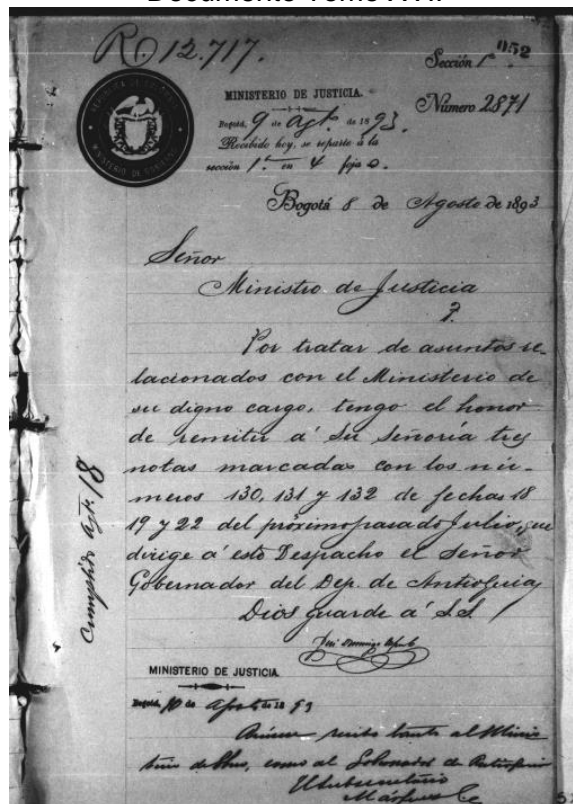 R.O 12.717.
Sección 1ª 952
MINISTERIO DE JUSTICIA.
Número 2871
Bogotá, 9 de Agto. de 1893.
Recibido hoy, se reparte á la
sección 1ª en 4 fojas.
Bogotá 8 de Agosto de 1893
Señor
Ministro de Justicia
P.
Por tratar de asuntos re-
lacionados con el Ministerio de
su digno cargo, tengo el honor
de remitir á Su Señoría tres
notas marcadas con los nú-
meros 130, 131 y 132 de fechas 18
19 y 22 del próximo pasado Julio, que
dirige á este Despacho el Señor
Gobernador del Dep. de Antioquia
Dios guarde á S.S.
Cumplido Agto. 18
MINISTERIO DE JUSTICIA.
Bogotá, 10 de Agosto de 1893
recibo tanto al Minis
terio de como al Gobernador de Antioquia
El Subsecretario